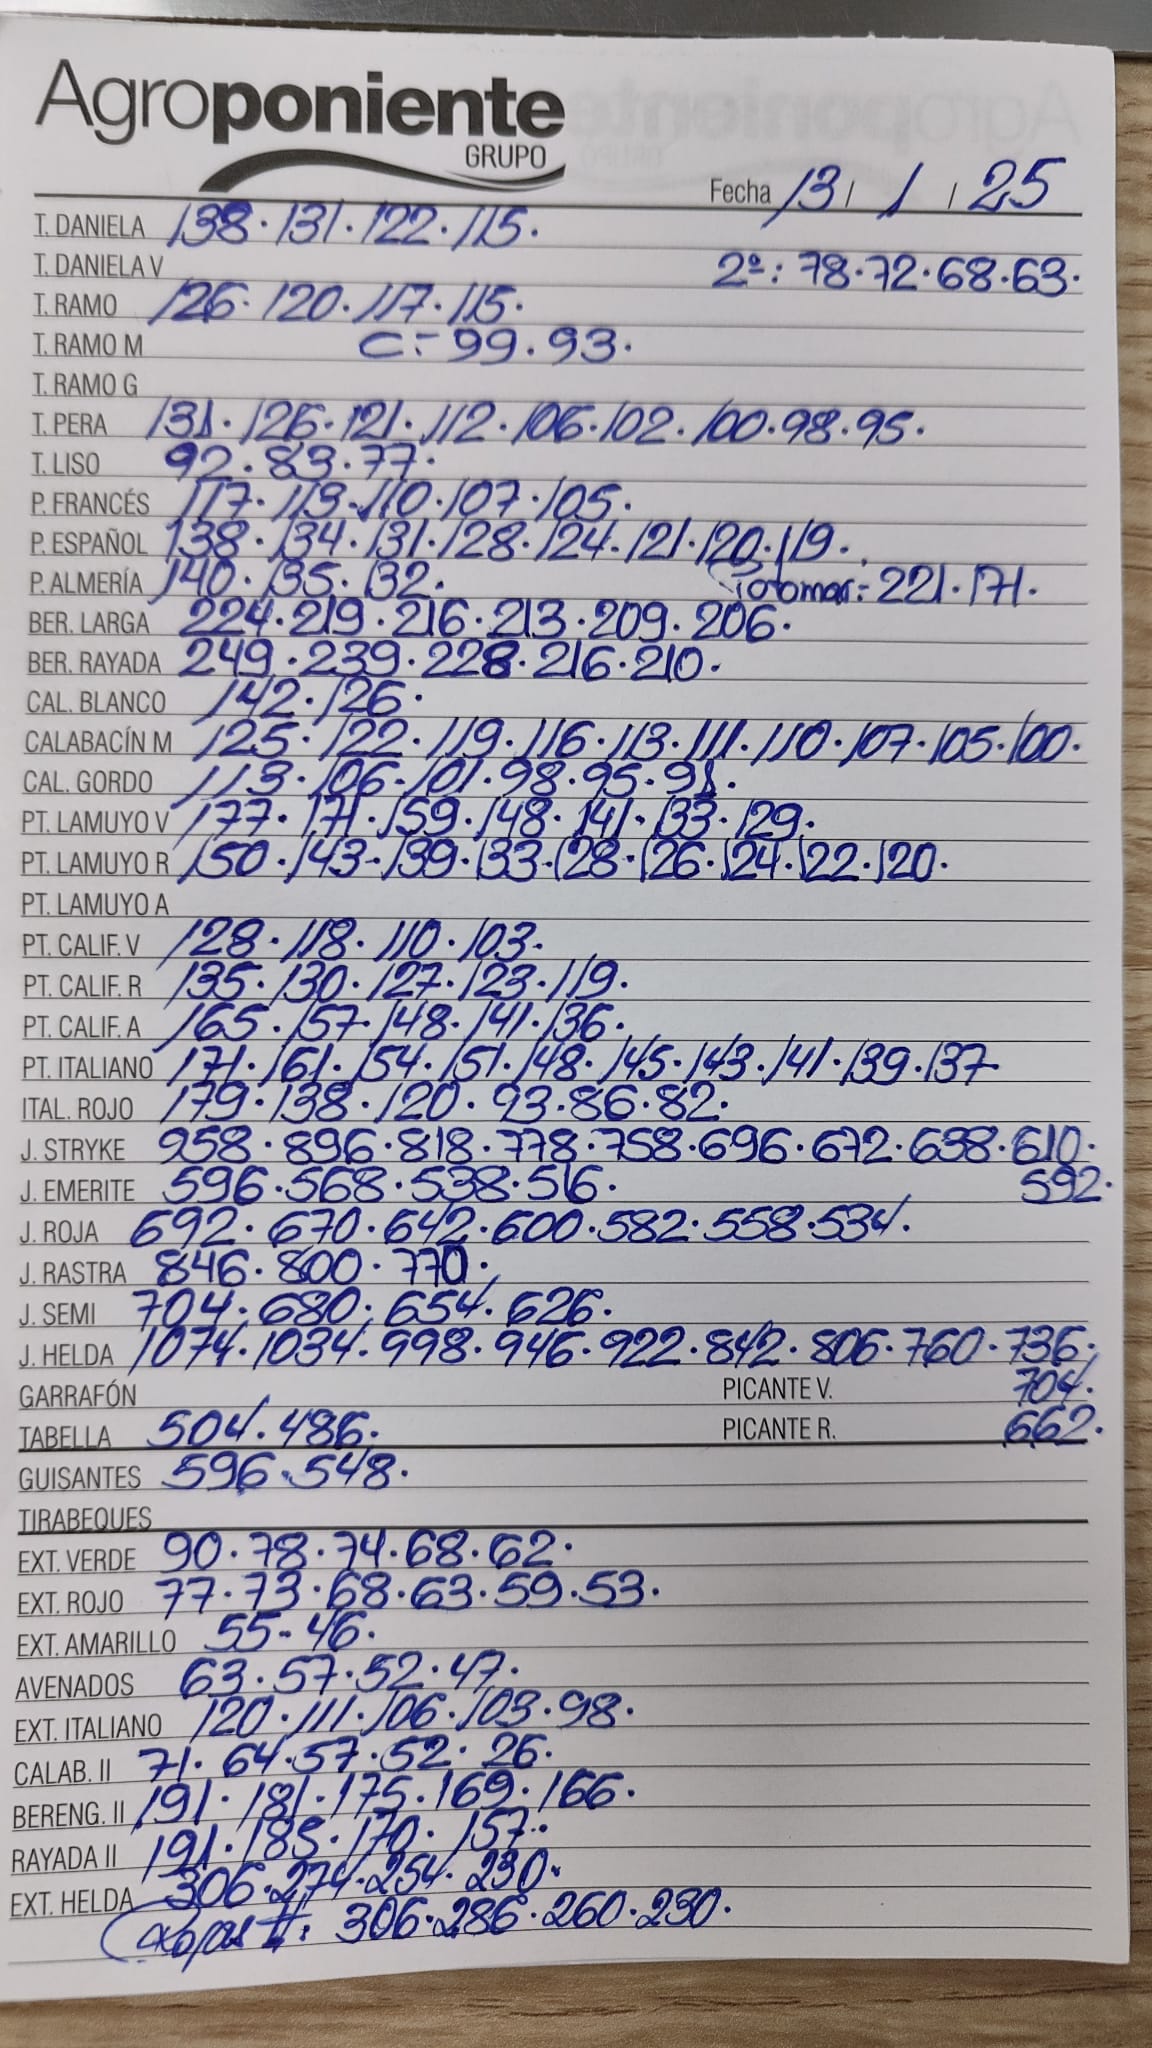 Agroponiente
GRUPO
Fecha 13 / 1 / 25
T. DANIELA 138. 131. 122. 115.
T. DANIELA V 2ª: 78. 72. 68. 63.
T. RAMO 126. 120. 117. 115.
T. RAMO M C:- 99. 93.
T. RAMO G
T. PERA 131. 126. 121. 112. 106. 102. 100. 98. 95.
T. LISO 92. 83. 77.
P. FRANCÉS 117. 113. 110. 107. 105.
P. ESPAÑOL 138. 134. 131. 128. 124. 121. 120. 119.
P. ALMERÍA 140. 135. 132. 221. 171.
BER. LARGA 224. 219. 216. 213. 209. 206.
BER. RAYADA 249. 239. 228. 216. 210.
CAL. BLANCO 142. 126.
CALABACÍN M 125. 122. 119. 116. 113. 111. 110. 107. 105. 100.
CAL. GORDO 113. 106. 101. 98. 95. 91.
PT. LAMUYO V 177. 171. 159. 148. 141. 133. 129.
PT. LAMUYO R 150. 143. 139. 133. 128. 126. 124. 122. 120.
PT. LAMUYO A
PT. CALIF. V 128. 118. 110. 103.
PT. CALIF. R 135. 130. 127. 123. 119.
PT. CALIF. A 165. 157. 148. 141. 136.
PT. ITALIANO 171. 161. 154. 151. 148. 145. 143. 141. 139. 137
ITAL. ROJO 179. 138. 120. 93. 86. 82.
J. STRYKE 958. 896. 818. 778. 758. 696. 672. 638. 610.
J. EMERITE 596. 568. 538. 516. 592.
J. ROJA 692. 670. 642. 600. 582. 558. 534.
J. RASTRA 846. 800. 770.
J. SEMI 704. 680. 654. 626.
J. HELDA 1074. 1034. 998. 946. 922. 842. 806. 760. 736.
GARRAFÓN PICANTE V. 704.
TABELLA 504. 486. PICANTE R. 662.
GUISANTES 596. 548.
TIRABEQUES
EXT. VERDE 90. 78. 74. 68. 62.
EXT. ROJO 77. 73. 68. 63. 59. 53.
EXT. AMARILLO 55. 46.
AVENADOS 63. 57. 52. 47.
EXT. ITALIANO 120. 111. 106. 103. 98.
CALAB. II 71. 64. 57. 52. 26.
BERENG. II 191. 181. 175. 169. 166.
RAYADA II 191. 185. 170. 157.
EXT. HELDA 306. 274. 254. 230.
II: 306. 286. 260. 230.